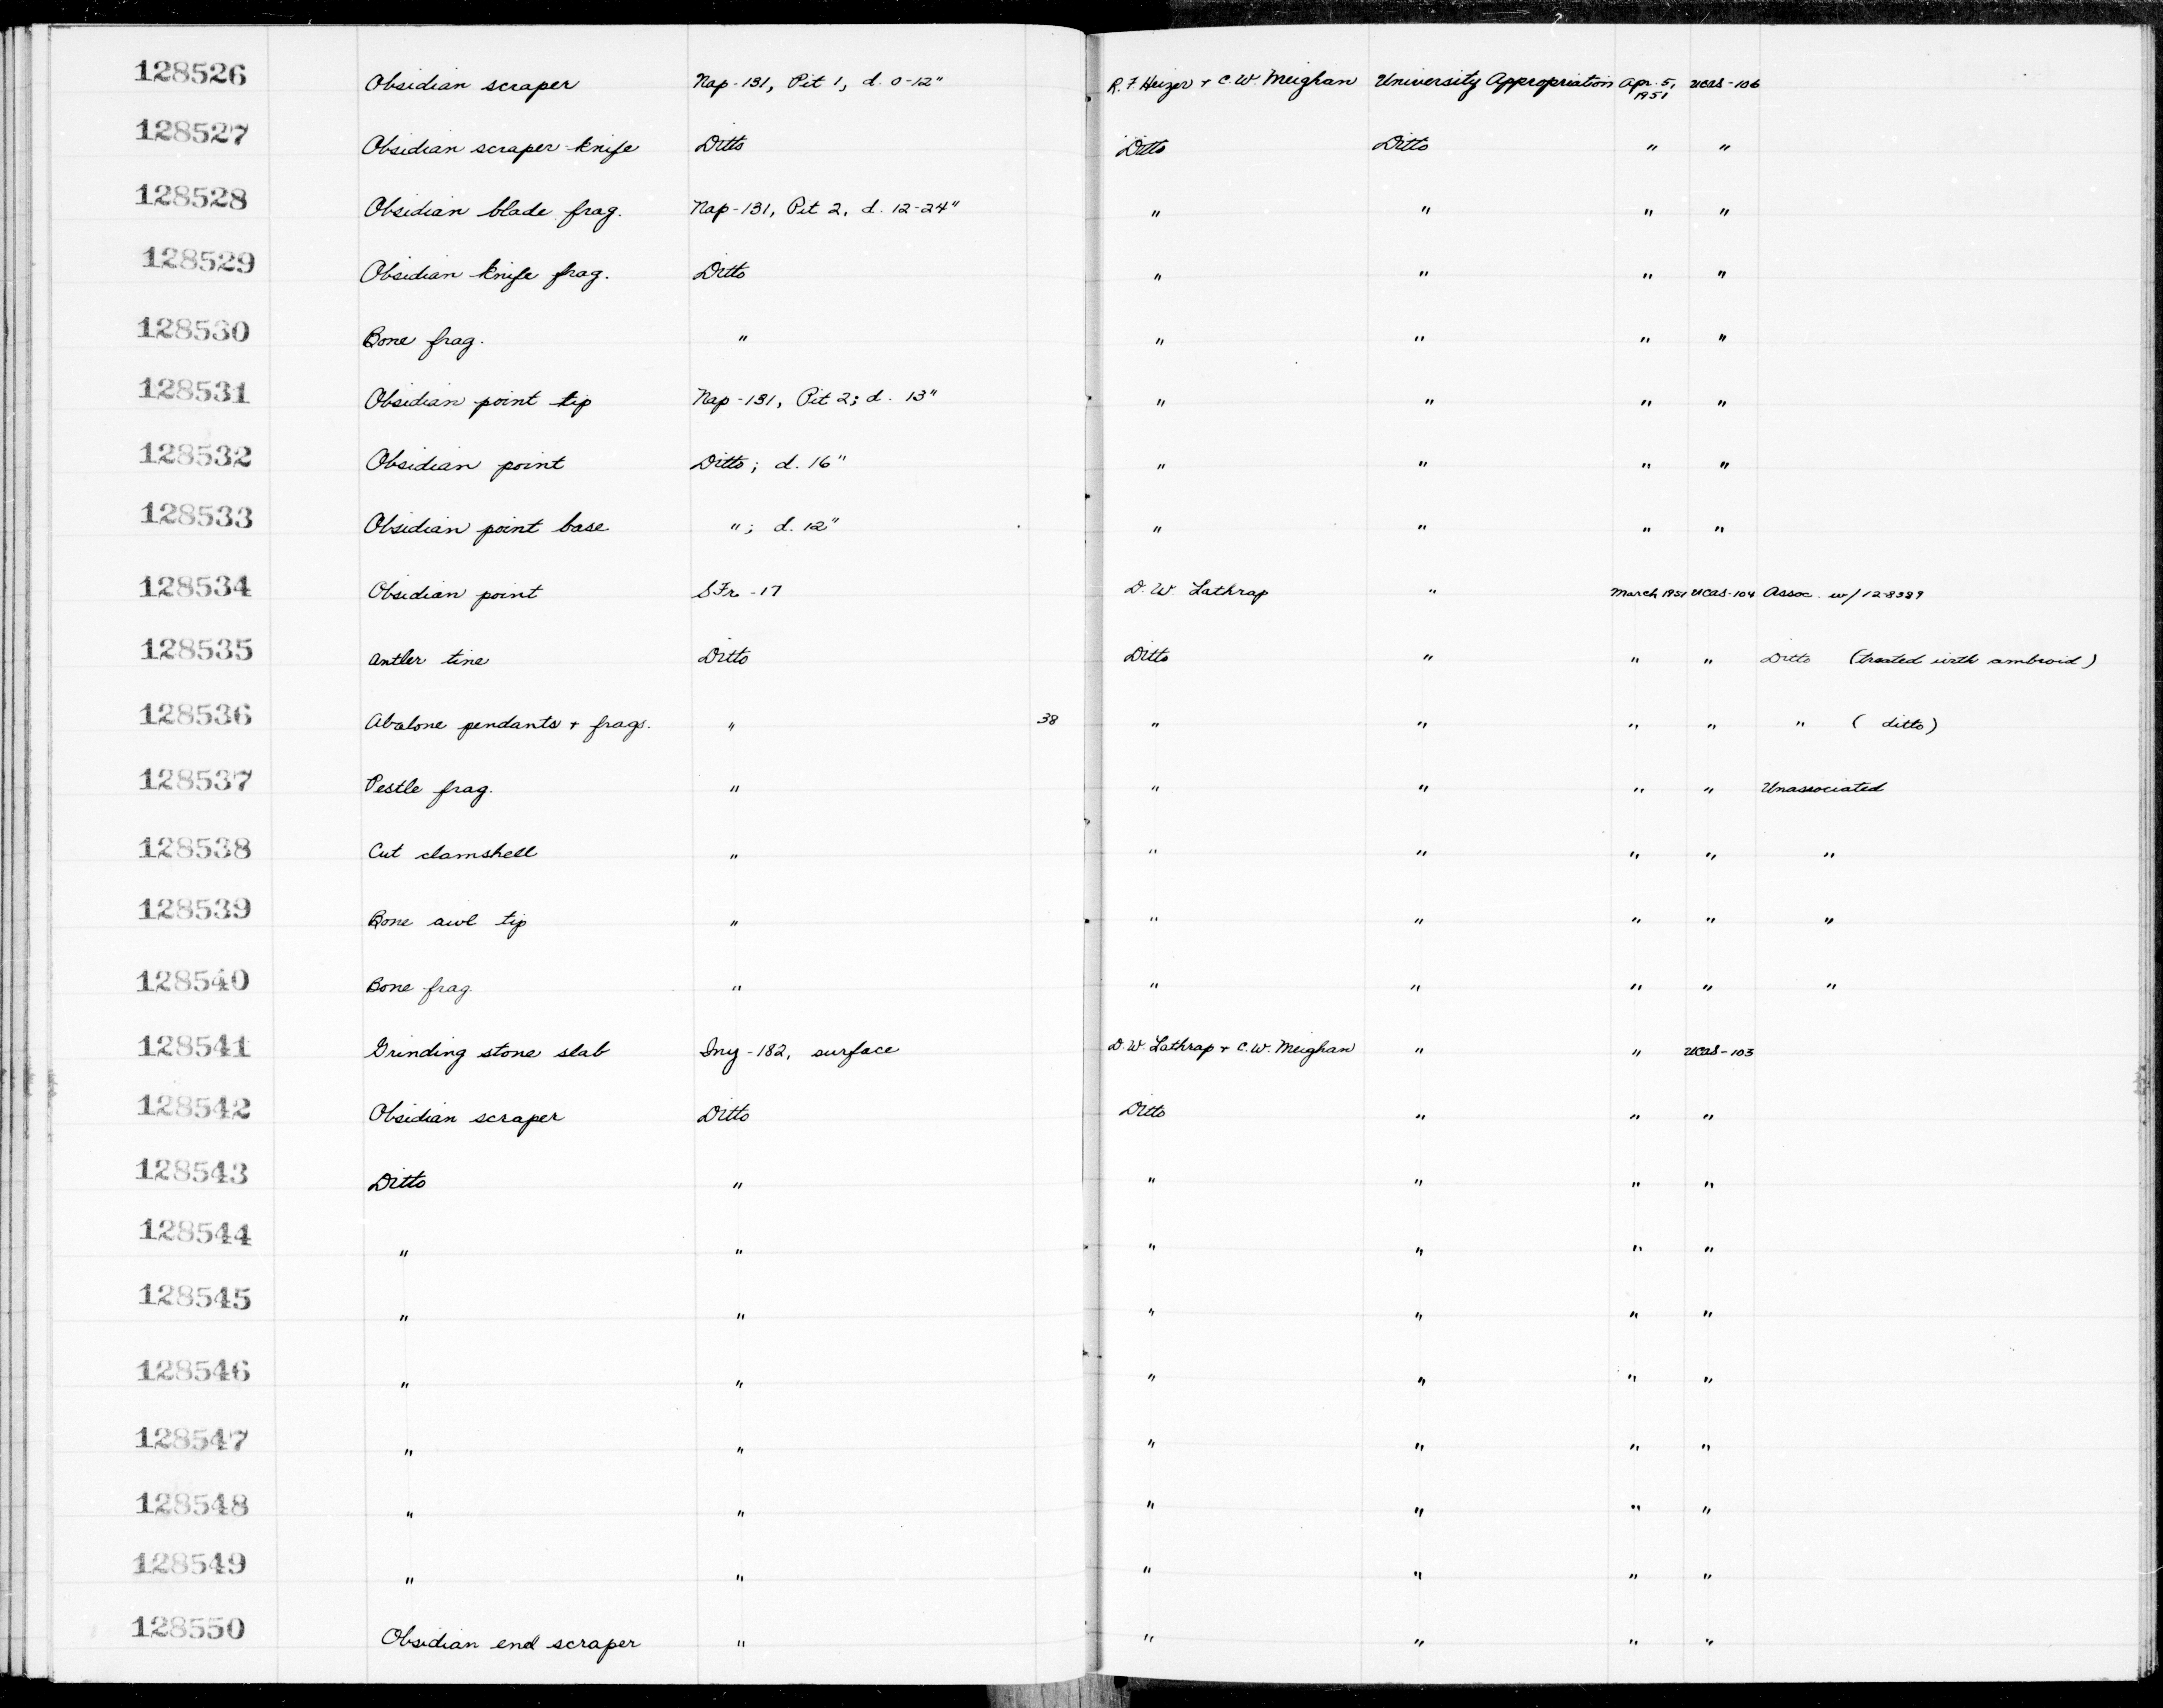 128526 Obsidian scraper Nap-131, Pit 1, d. 0-12" R.F. Heizer + C.W. Meighan University Appropriation Apr. 5, 1951 UCAS-106
128527 Obsidian scraper-knife Ditto Ditto Ditto " "
128528 Obsidian blade frag. Nap-131, Pit 2, d. 12-24" " " " "
128529 Obsidian knife frag. Ditto " " " "
128530 Bone frag. " " " " "
128531 Obsidian point tip Nap-131, Pit 2; d. 13" " " " "
128532 Obsidian point Ditto; d. 16" " " " "
128533 Obsidian point base "; d. 12" " " " "
128534 Obsidian point SFr-17 D.W Lathrap " March 1951 UCAS-104 Assoc. w/12-8389
128535 Antler tine Ditto Ditto " " " Ditto (treated with ambroid)
128536 Abalone pendants + frags. " 38 " " " " " (ditto)
128537 Pestle frag. " " " " " Unassociated
128538 Cut clamshell " " " " " "
128539 Bone awl tip " " " " " "
128540 Bone frag. " " " " " "
128541 Grinding stone slab Iny-182, surface D.W. Lathrap + C.W. Meighan " " UCAS-103
128542 Obsidian scraper Ditto Ditto " " "
128543 Ditto " " " " "
128544 " " " " " "
128545 " " " " " "
128546 " " " " " "
128547 " " " " " "
128548 " " " " " "
128549 " " " " " "
128550 Obsidian end scraper " " " " "